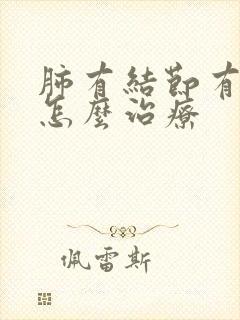 肺有結節有
怎麼治療
佩雷斯